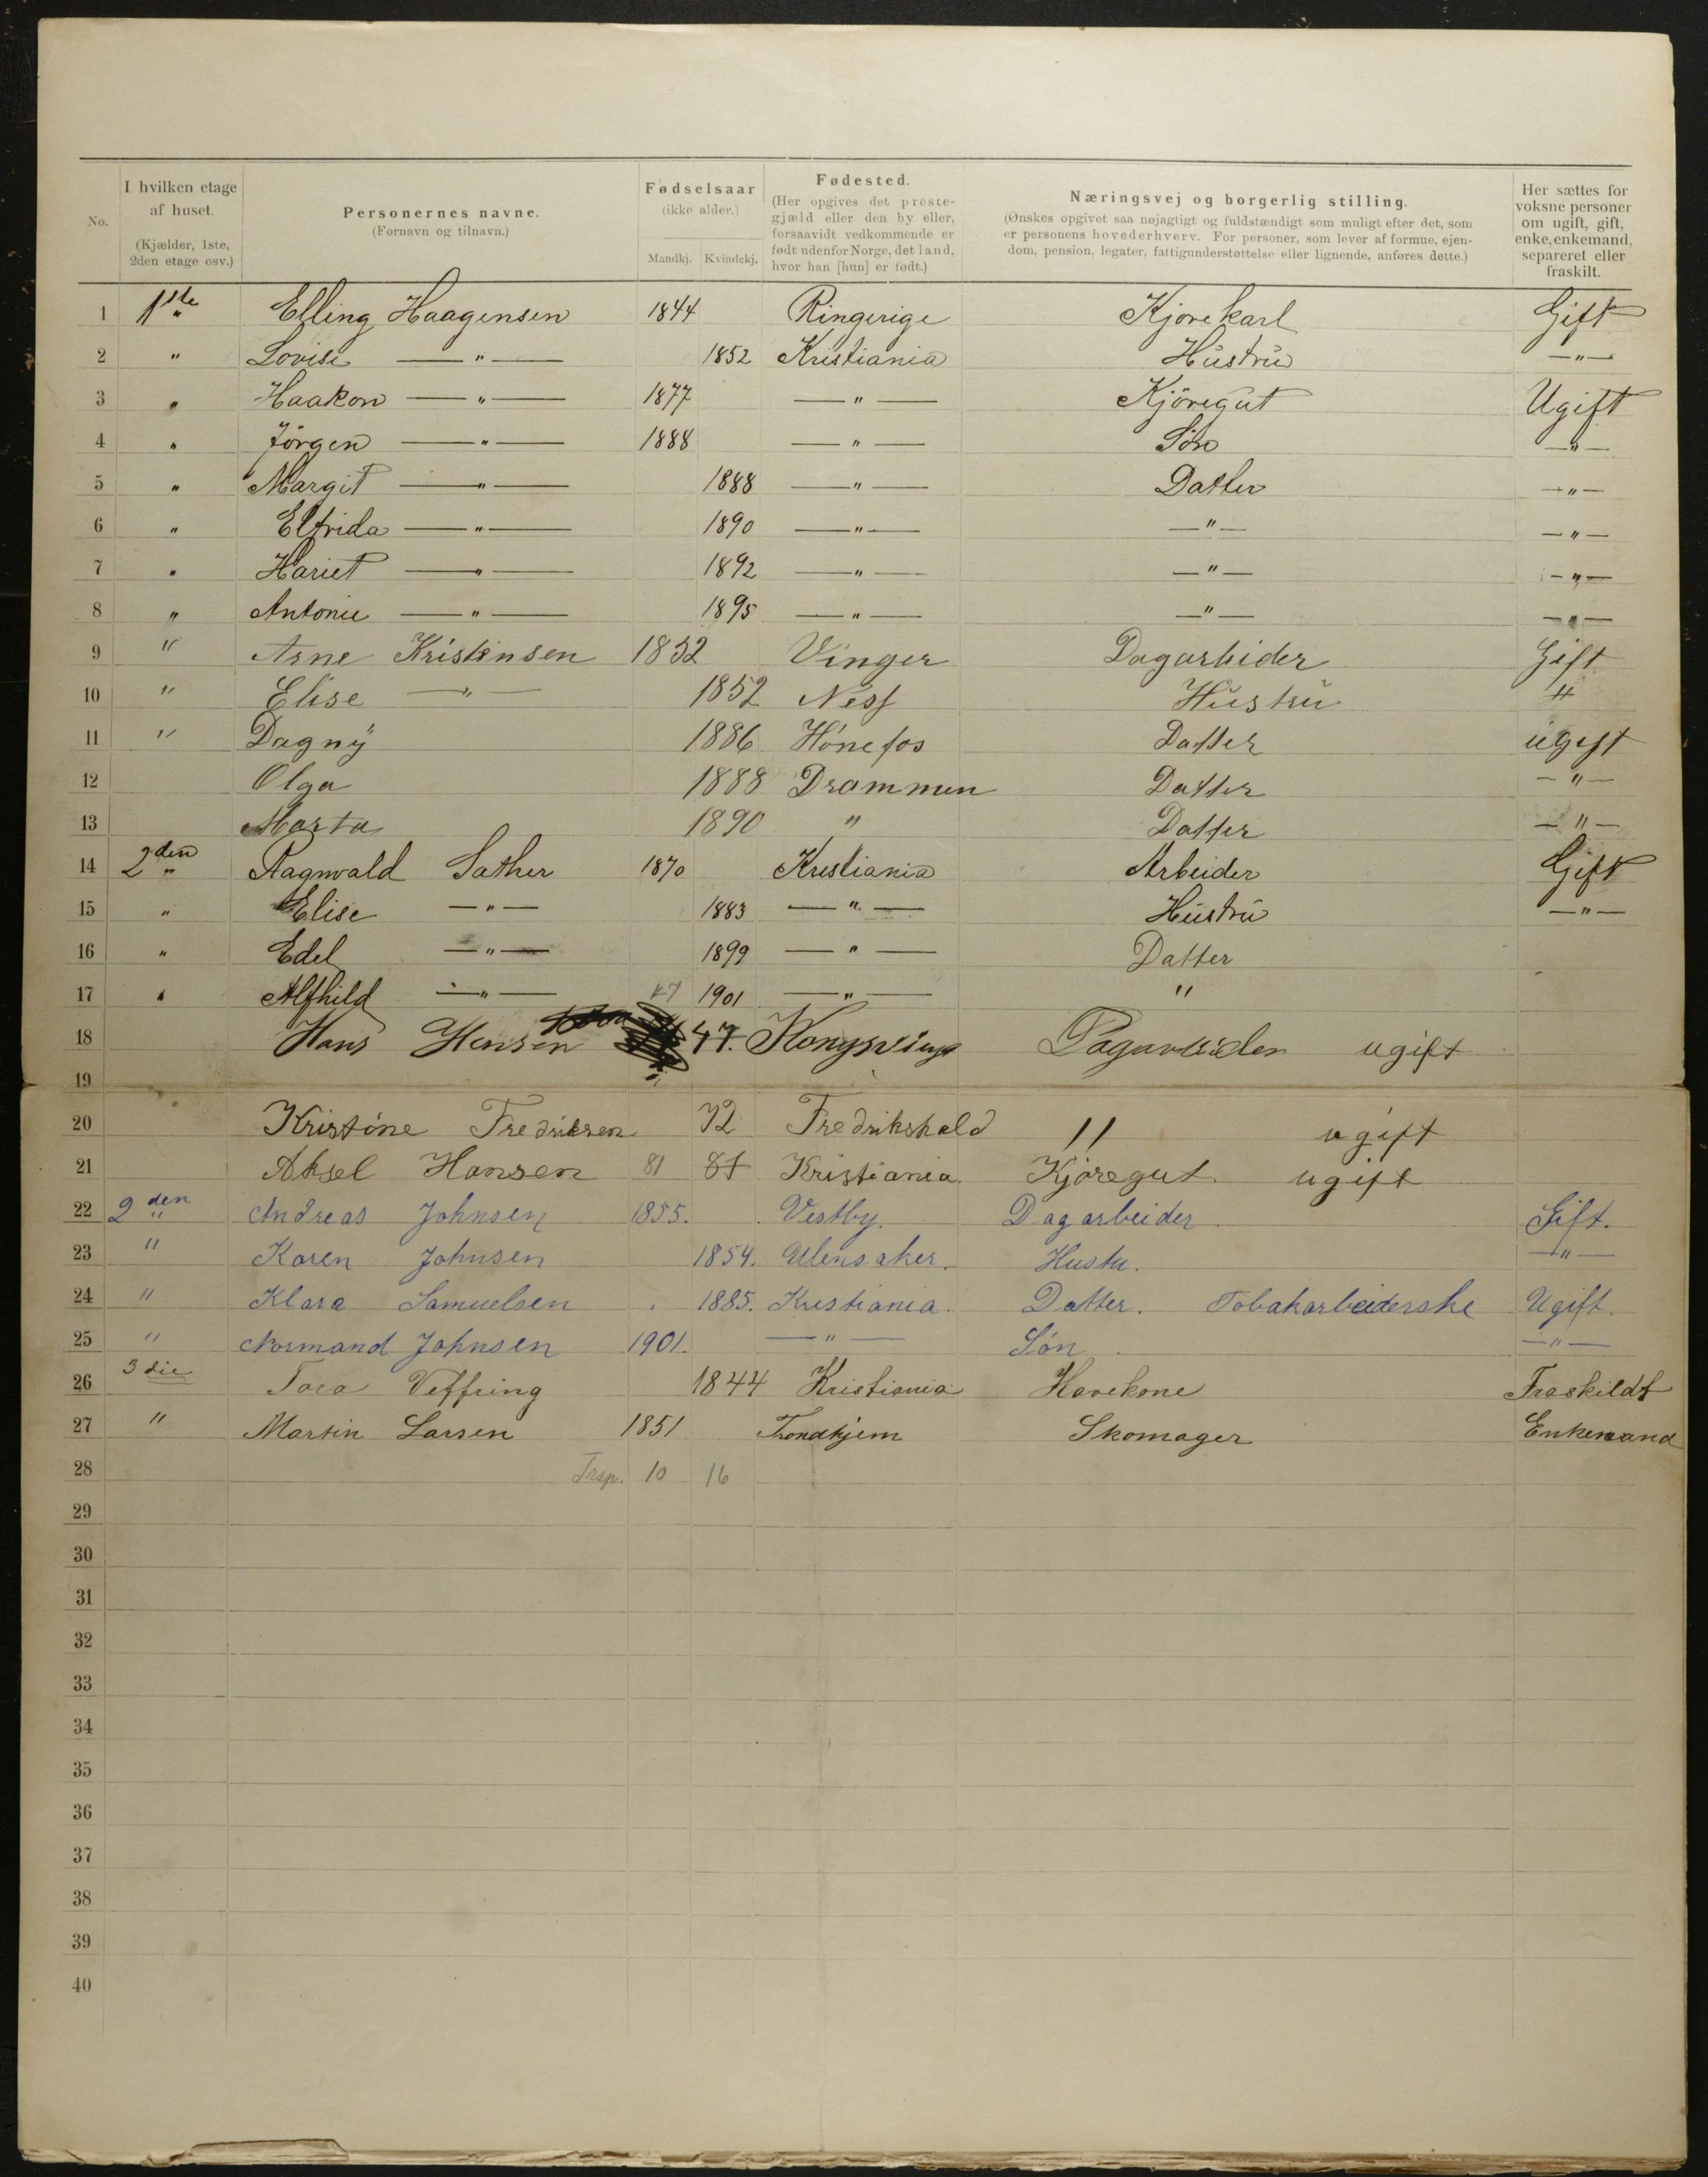 No. I hvilken etage af huset. (Kjælder, 1ste, 2den etage osv.) Personernes navne. (Fornavn og tilnavn.) Fødselsaar (ikke alder.) Mandkj. Kvindekj. Fødested. (Her opgives det prestegjæld eller den by eller, forsaavidt vedkommende er født udenfor Norge, det land, hvor han [hun] er født.) Næringsvej og borgerlig stilling. (Ønskes opgivet saa nøjagtigt og fuldstændigt som muligt efter det, som er personens hovederhverv. For personer, som lever af formue, ejendom, pension, legater, fattigunderstøttelse eller lignende, anføres dette.) Her sættes for voksne personer om ugift, gift, enke, enkemand, separeret eller fraskilt.
1 1ste Elling Haagensen 1844 Ringerige Kjørekarl Gift
2 " Lovise —"— 1852 Kristiania Hustru —"—
3 " Haakon —"— 1877 —"— Kjöregut Ugift
4 " Jörgen —"— 1888 —"— Sön —"—
5 " Margit —"— 1888 —"— Datter —"—
6 " Elfrida —"— 1890 —"— —"— —"—
7 " Hariet —"— 1892 —"— —"— —"—
8 " Antonie —"— 1895 —"— —"— —"—
9 " Arne Kristensen 1852 Vinger Dagarbeider Gift
10 " Elise —"— 1852 Ness Hustru "
11 " Dagny 1886 Hønefos Datter ugift
12 Olga 1888 Drammen Datter —"—
13 Marta 1890 " Datter —"—
14 2den Ragnvald Sather 1870 Kristiania Arbeider Gift
15 " Elise —"— 1883 —"— Hustru —"—
16 " Edel —"— 1899 —"— Datter
17 " Alfhild —"— 47 1901 —"— "
18 Hans Hensen 47. Kongsvinge Dagarbeider ugift
19
20 Kristine Fredriksen 72 Fredrikshald " ugift
21 Aksel Hansen 81 81 Kristiania Kjøregut ugift
22 2den Andreas Johnsen 1855. Vestby. Dagarbeider Gift.
23 " Karen Johnsen 1854. Ulensaker. Hustu. —"—
24 " Klara Samuelsen 1885. Kristiania. Datter. Tobakarbeiderske Ugift.
25 " Normand Johnsen 1901. —"— Søn —"—
26 3die Tora Veffring 1844 Kristiania Havekone Fraskildt
27 " Martin Larsen 1851 Trondhjem Skomager Enkemand
28 Trsp. 10 16
29
30
31
32
33
34
35
36
37
38
39
40